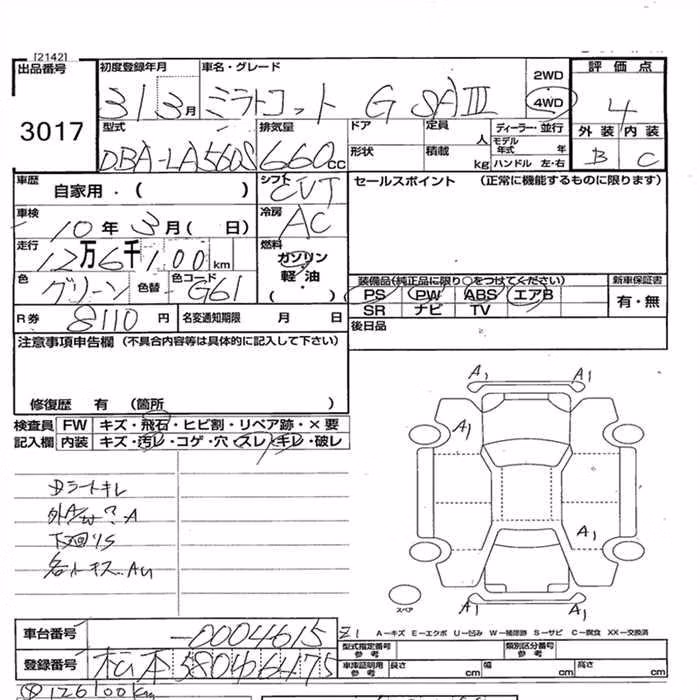 [2142]
出品番号
3017
初度登録年月
31 3月
車名・グレード
ミラトコット G SAⅢ
2WD
4WD
評価点
4
外装 内装
B C
型式
DBA-LA560S
排気量
660cc
ドア
定員
人
形状
積載
kg
ディーラー・並行
モデル年式 年
ハンドル 左・右
車歴
自家用・( )
シフト
CVT
セールスポイント (正常に機能するものに限ります)
車検
10年3月( 日)
冷房
AC
走行
12万6千100km
燃料
ガソリン
軽・油
( )
色
グリーン
色替
色コード
G61
装備品(純正品に限り○をつけてください)
PS PW ABS エアB
SR ナビ TV
新車保証書
有・無
R券
8110円
名変通知期限 月 日
後日品
注意事項申告欄(不具合内容等は具体的に記入して下さい)
修復歴 有 (箇所 )
検査員記入欄
FW キズ・飛石・ヒビ割・リペア跡・×要
内装 キズ・汚レ・コゲ・穴・スレ・キレ・破レ
A1 A1
A1
A1
A1 A1
スペア
Dシートキレ
下廻りS
車台番号
-0004615
登録番号
松本580の6475
A-キズ E-エクボ U-凹み W-補修跡 S-サビ C-腐食 XX-交換済
型式指定番号
類別区分番号
車庫証明用参考 長さ cm 幅 cm 高さ cm
126100km